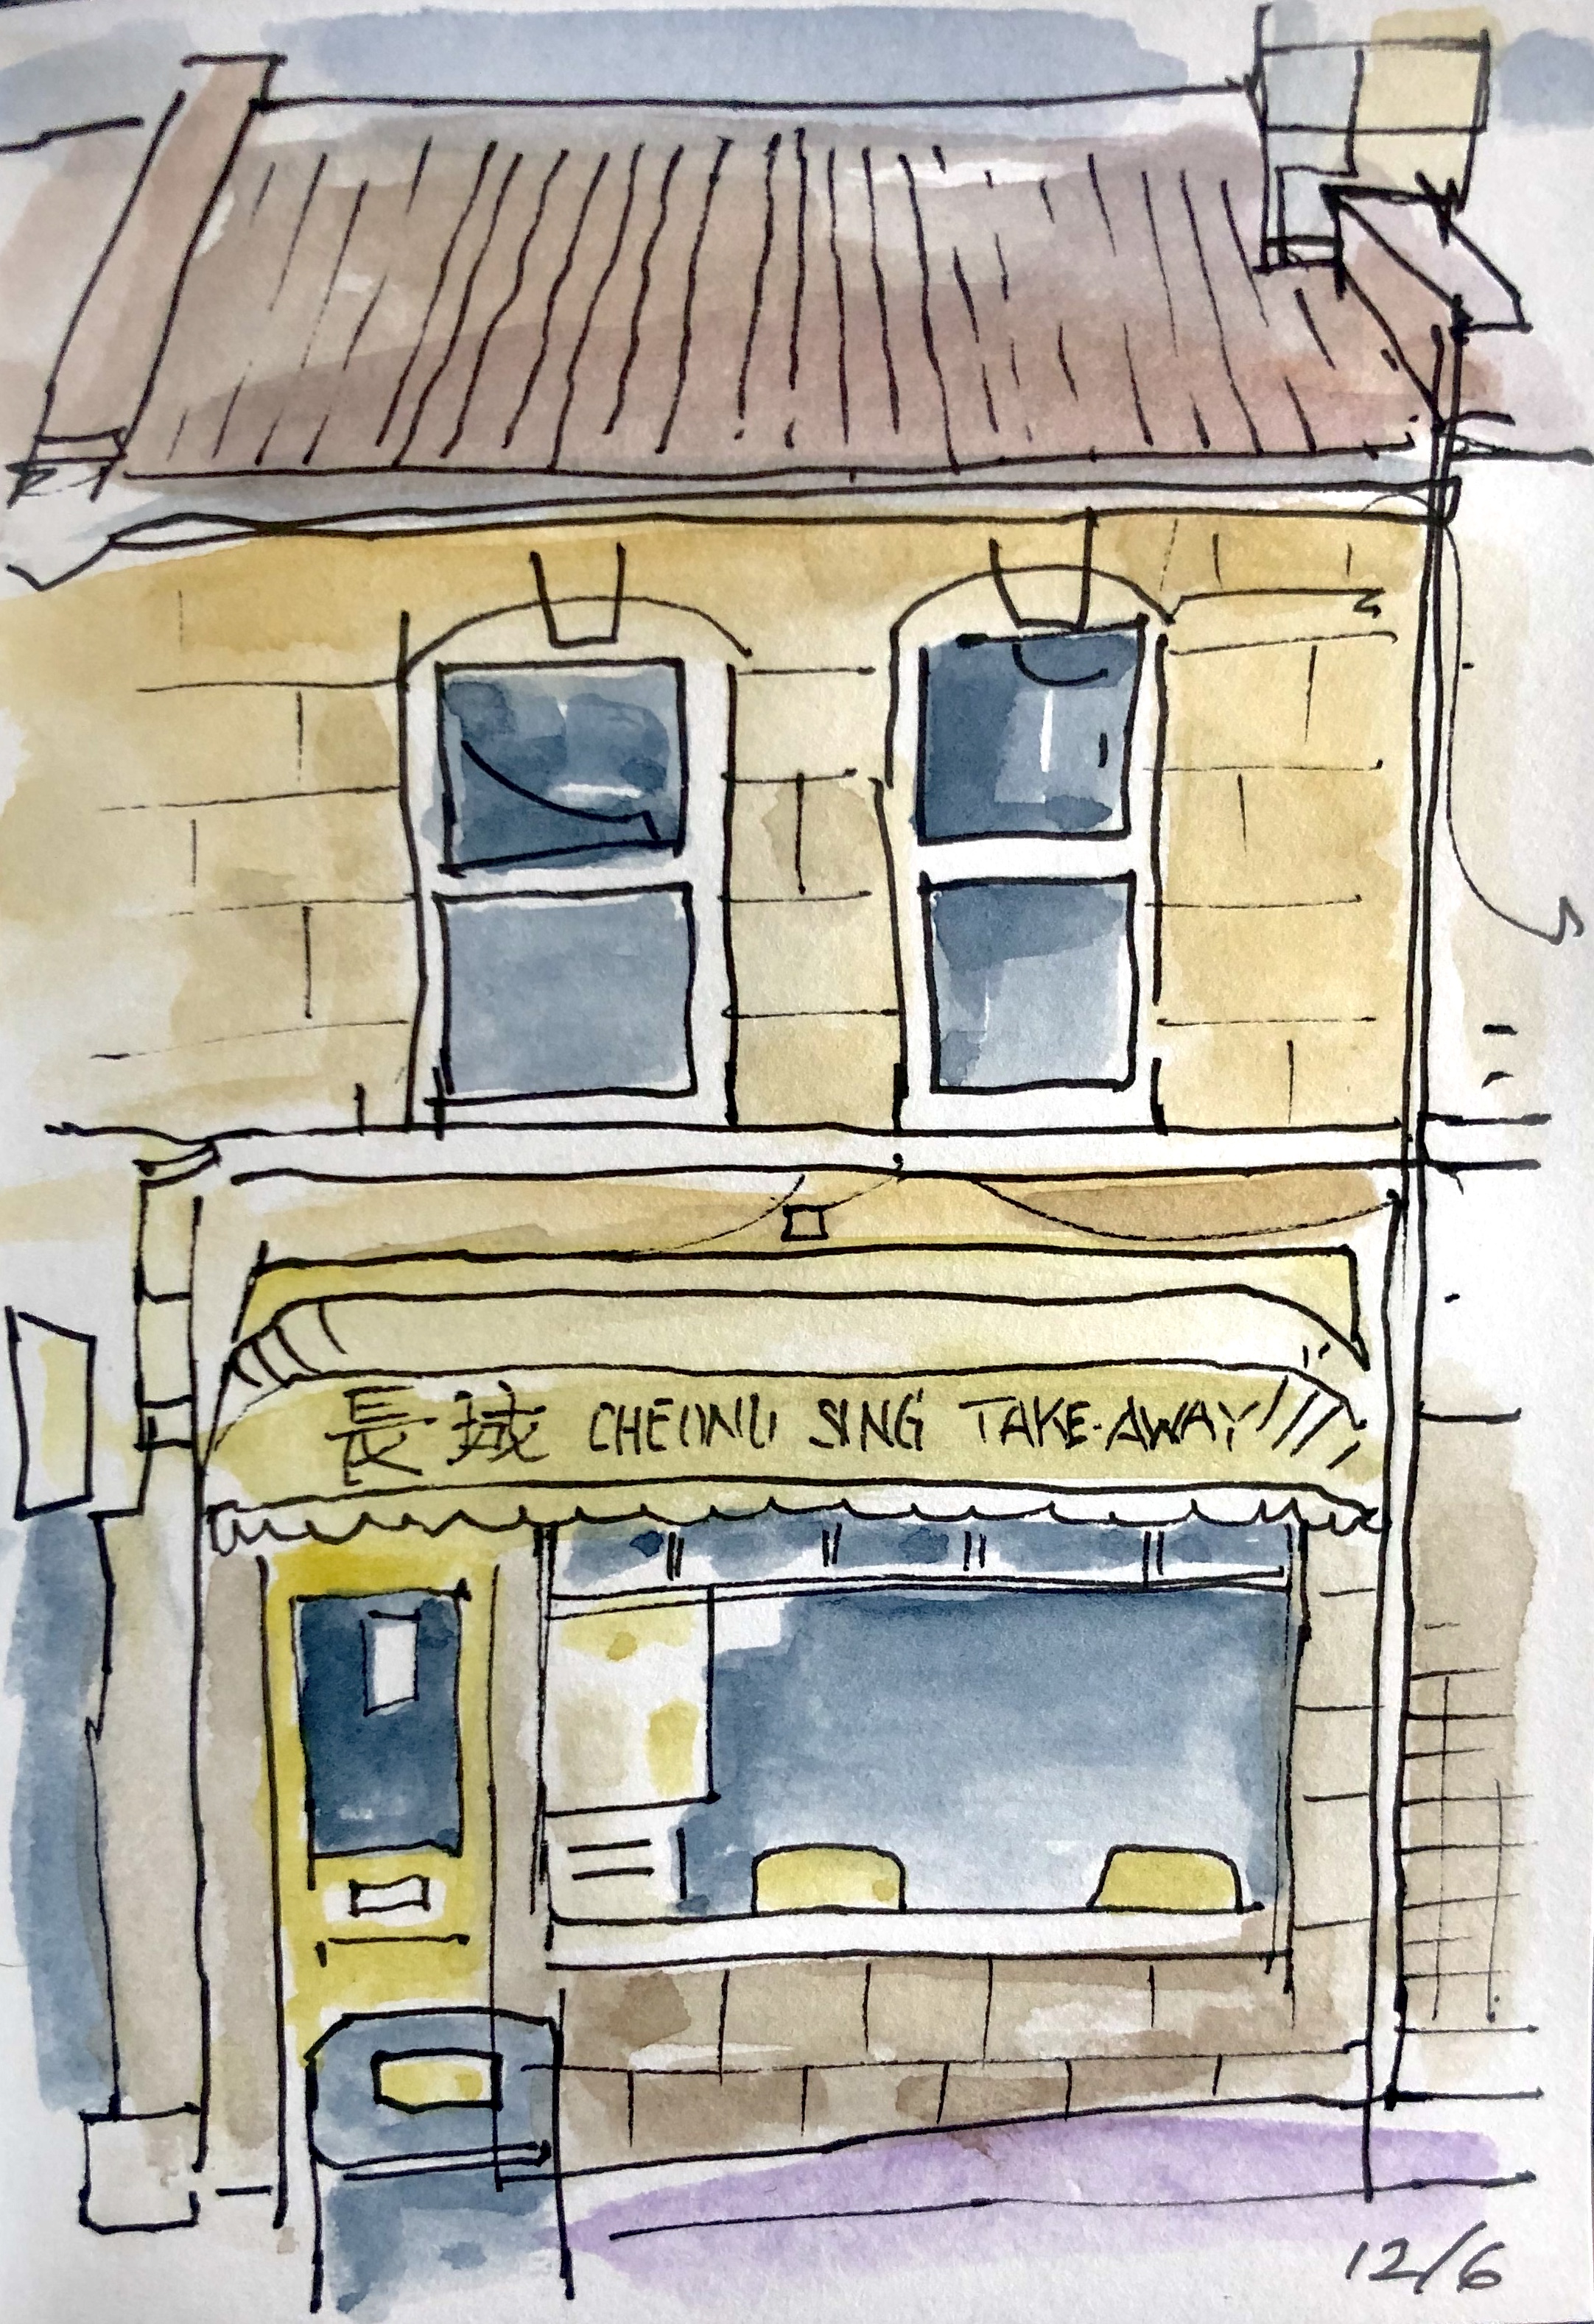 長城 CHEUNG SING TAKE-AWAY
12/6